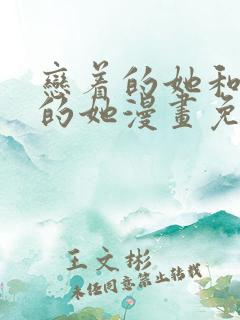 戀着的她和
的她漫畫免
王文彬
未经同意禁止转载